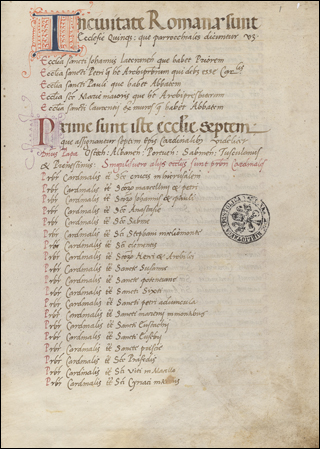 In civitate Romana sunt
Ecclesie Quinque que parrochiales dicuntur vz
Ecclia sancti Johannis Lateranen que habet Priorem
Ecclia sancti Petri que habet Archipresbrum qui debet esse Car
Ecclia sancti Pauli que habet Abbatem
Ecclia Sce Marie maioris que habet Archipresbrum
Ecclia sancti Laurentij ex muros que habet Abbatem
Prime sunt iste ecclie septem
que assignantur septem Epis Cardinalibus
Ostien Alban Portuen Sabinen Tusculanen
& Penestrinus Singulis alijs ecclijs sunt prbri Cardinales
Prbr Cardinalis tt Sce crucis in hierusalem
Prbr Cardinalis tt Sctor marcellini & petri
Prbr Cardinalis tt Sctor Johannis & pauli
Prbr Cardinalis tt Sce Anastasie
Prbr Cardinalis tt Sce Sabine
Prbr Cardinalis tt Sci Stephani in celiomonte
Prbr Cardinalis tt Sci clementis
Prbr Cardinalis tt Sctor Nerei & Archilei
Prbr Cardinalis tt Sancte Susanne
Prbr Cardinalis tt Sancte potentiane
Prbr Cardinalis tt Sancti Sixti
Prbr Cardinalis tt Sancti petri ad vincula
Prbr Cardinalis tt Sancti martini in montibus
Prbr Cardinalis tt Sancti Eustachij
Prbr Cardinalis tt Sancti Eusebij
Prbr Cardinalis tt Sancte prisce
Prbr Cardinalis tt Sce Praxedis
Prbr Cardinalis tt Sti Viti in Macello
Prbr Cardinalis tt Sci Cyriaci in